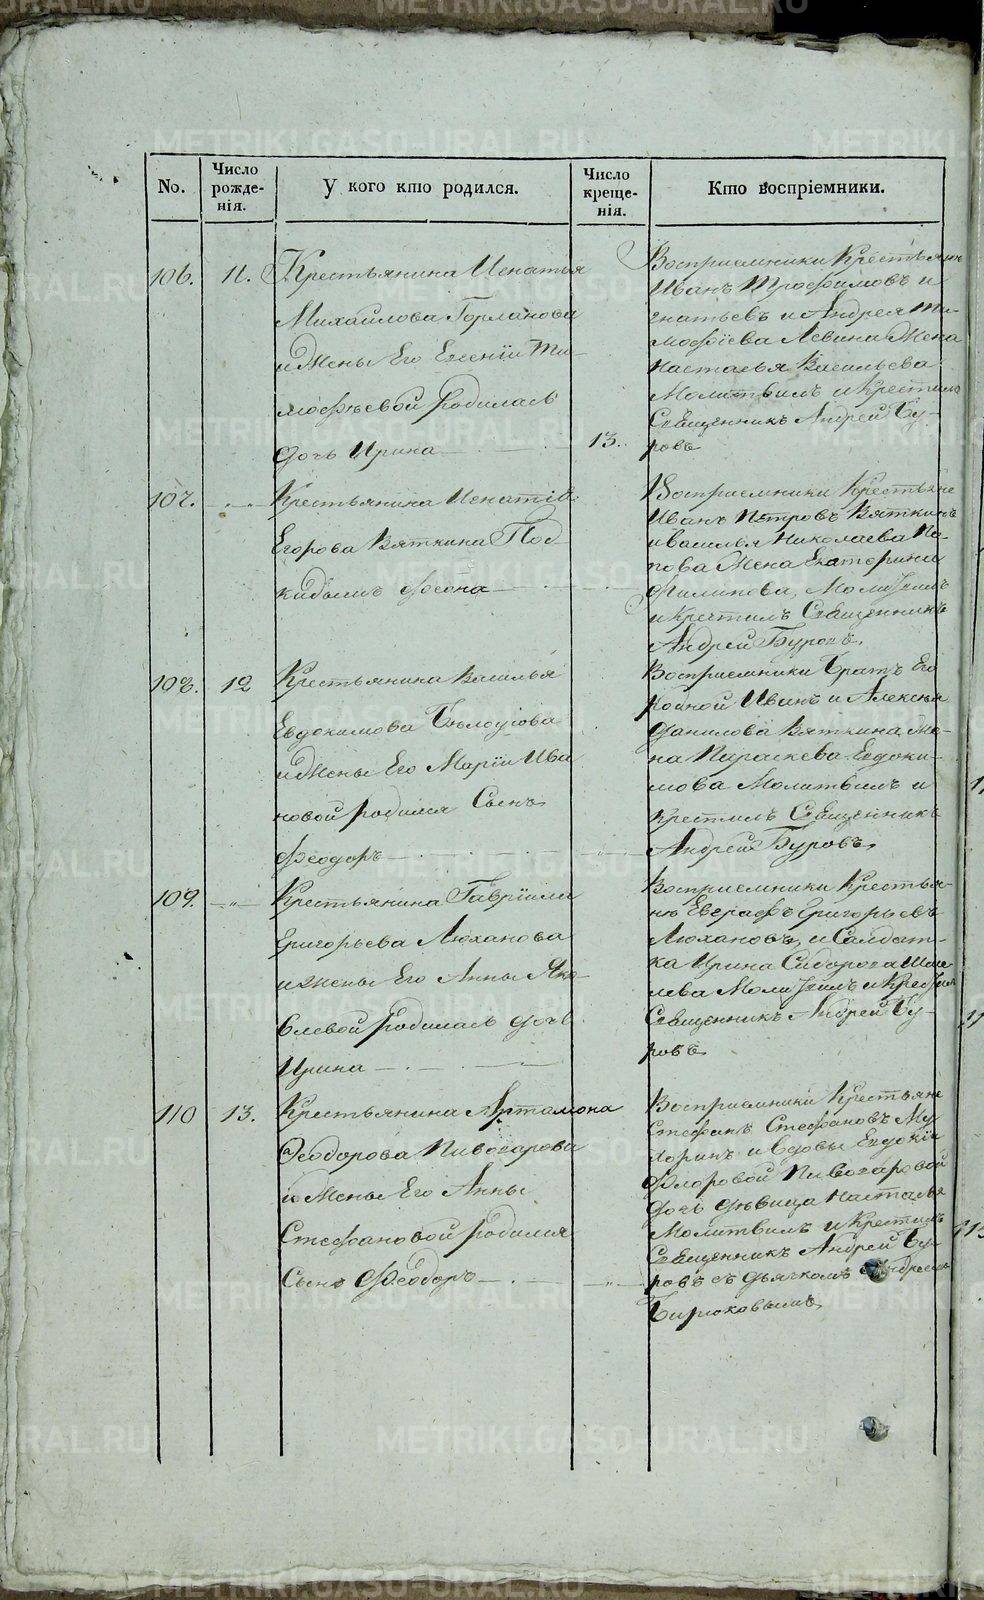 METRIKI.GASO-URAL.RU
No.
Число рожде-нія.
У кого кто родился.
Число креще-нія.
Кто воспріемники.
106.
11.
Крестьянина Игнатья
Михайлова Горланова
и жены Его Евгеніи Ти-
мофѣевой родилась
дочь Ирина
13.
Восприемники Крестьяне
Иванъ Трофимовъ и
гнатьевъ и Андрея Ти-
мофѣева Левина Жена
Настасья Васильева
Молитвилъ и Крестилъ
Священникъ Андрей Бу-
ровъ
107.
Крестьянина Игнатія
Егорова Вяткина Под
кидышъ Фѳона
Восприемники Крестьяне
Иванъ Петровъ Вяткинъ
и Василья Николаева По-
пова Жена Екатерина
Филипова, Молитвилъ
и Крестилъ Священникъ
Андрей Буровъ.
108.
12
Крестьянина Василья
Евдокимова Бѣлоусова
и Жены Его Маріи Ива
новой родился Сынъ
Феодоръ
Восприемники Братъ Его
родной Иванъ и Алексѣя
Данилова Вяткина Же-
на Параскева Евдоки-
мова Молитвилъ и
крестилъ Священникъ
Андрей Буровъ.
109.
Крестьянина Гавріила
Григорьева Люханова
и жены Его Анны Яко-
влевой родилась дочь
Ирина
Восприемники Крестья-
не Евграфъ Григорьевъ
Люхановъ, и Салдат-
ка Ирина Сидорова
Молитвилъ и Крестилъ
Священникъ Андрей Бу-
ровъ
110
13.
Крестьянина Артамона
Ѳеодорова Пивоварова
и Жены Его Анны
Стефановой родился
Сынъ Феодоръ
Восприемники Крестьяне
Стефанъ Стефановъ Му
хоринъ и вдовы Евдокіи
Флоровой Пивоваровой
дочь дѣвица Наталья
Молитвилъ и Крестилъ
Священникъ Андрей Бу-
ровъ съ дьячкомъ Андреемъ
Бирюковымъ.